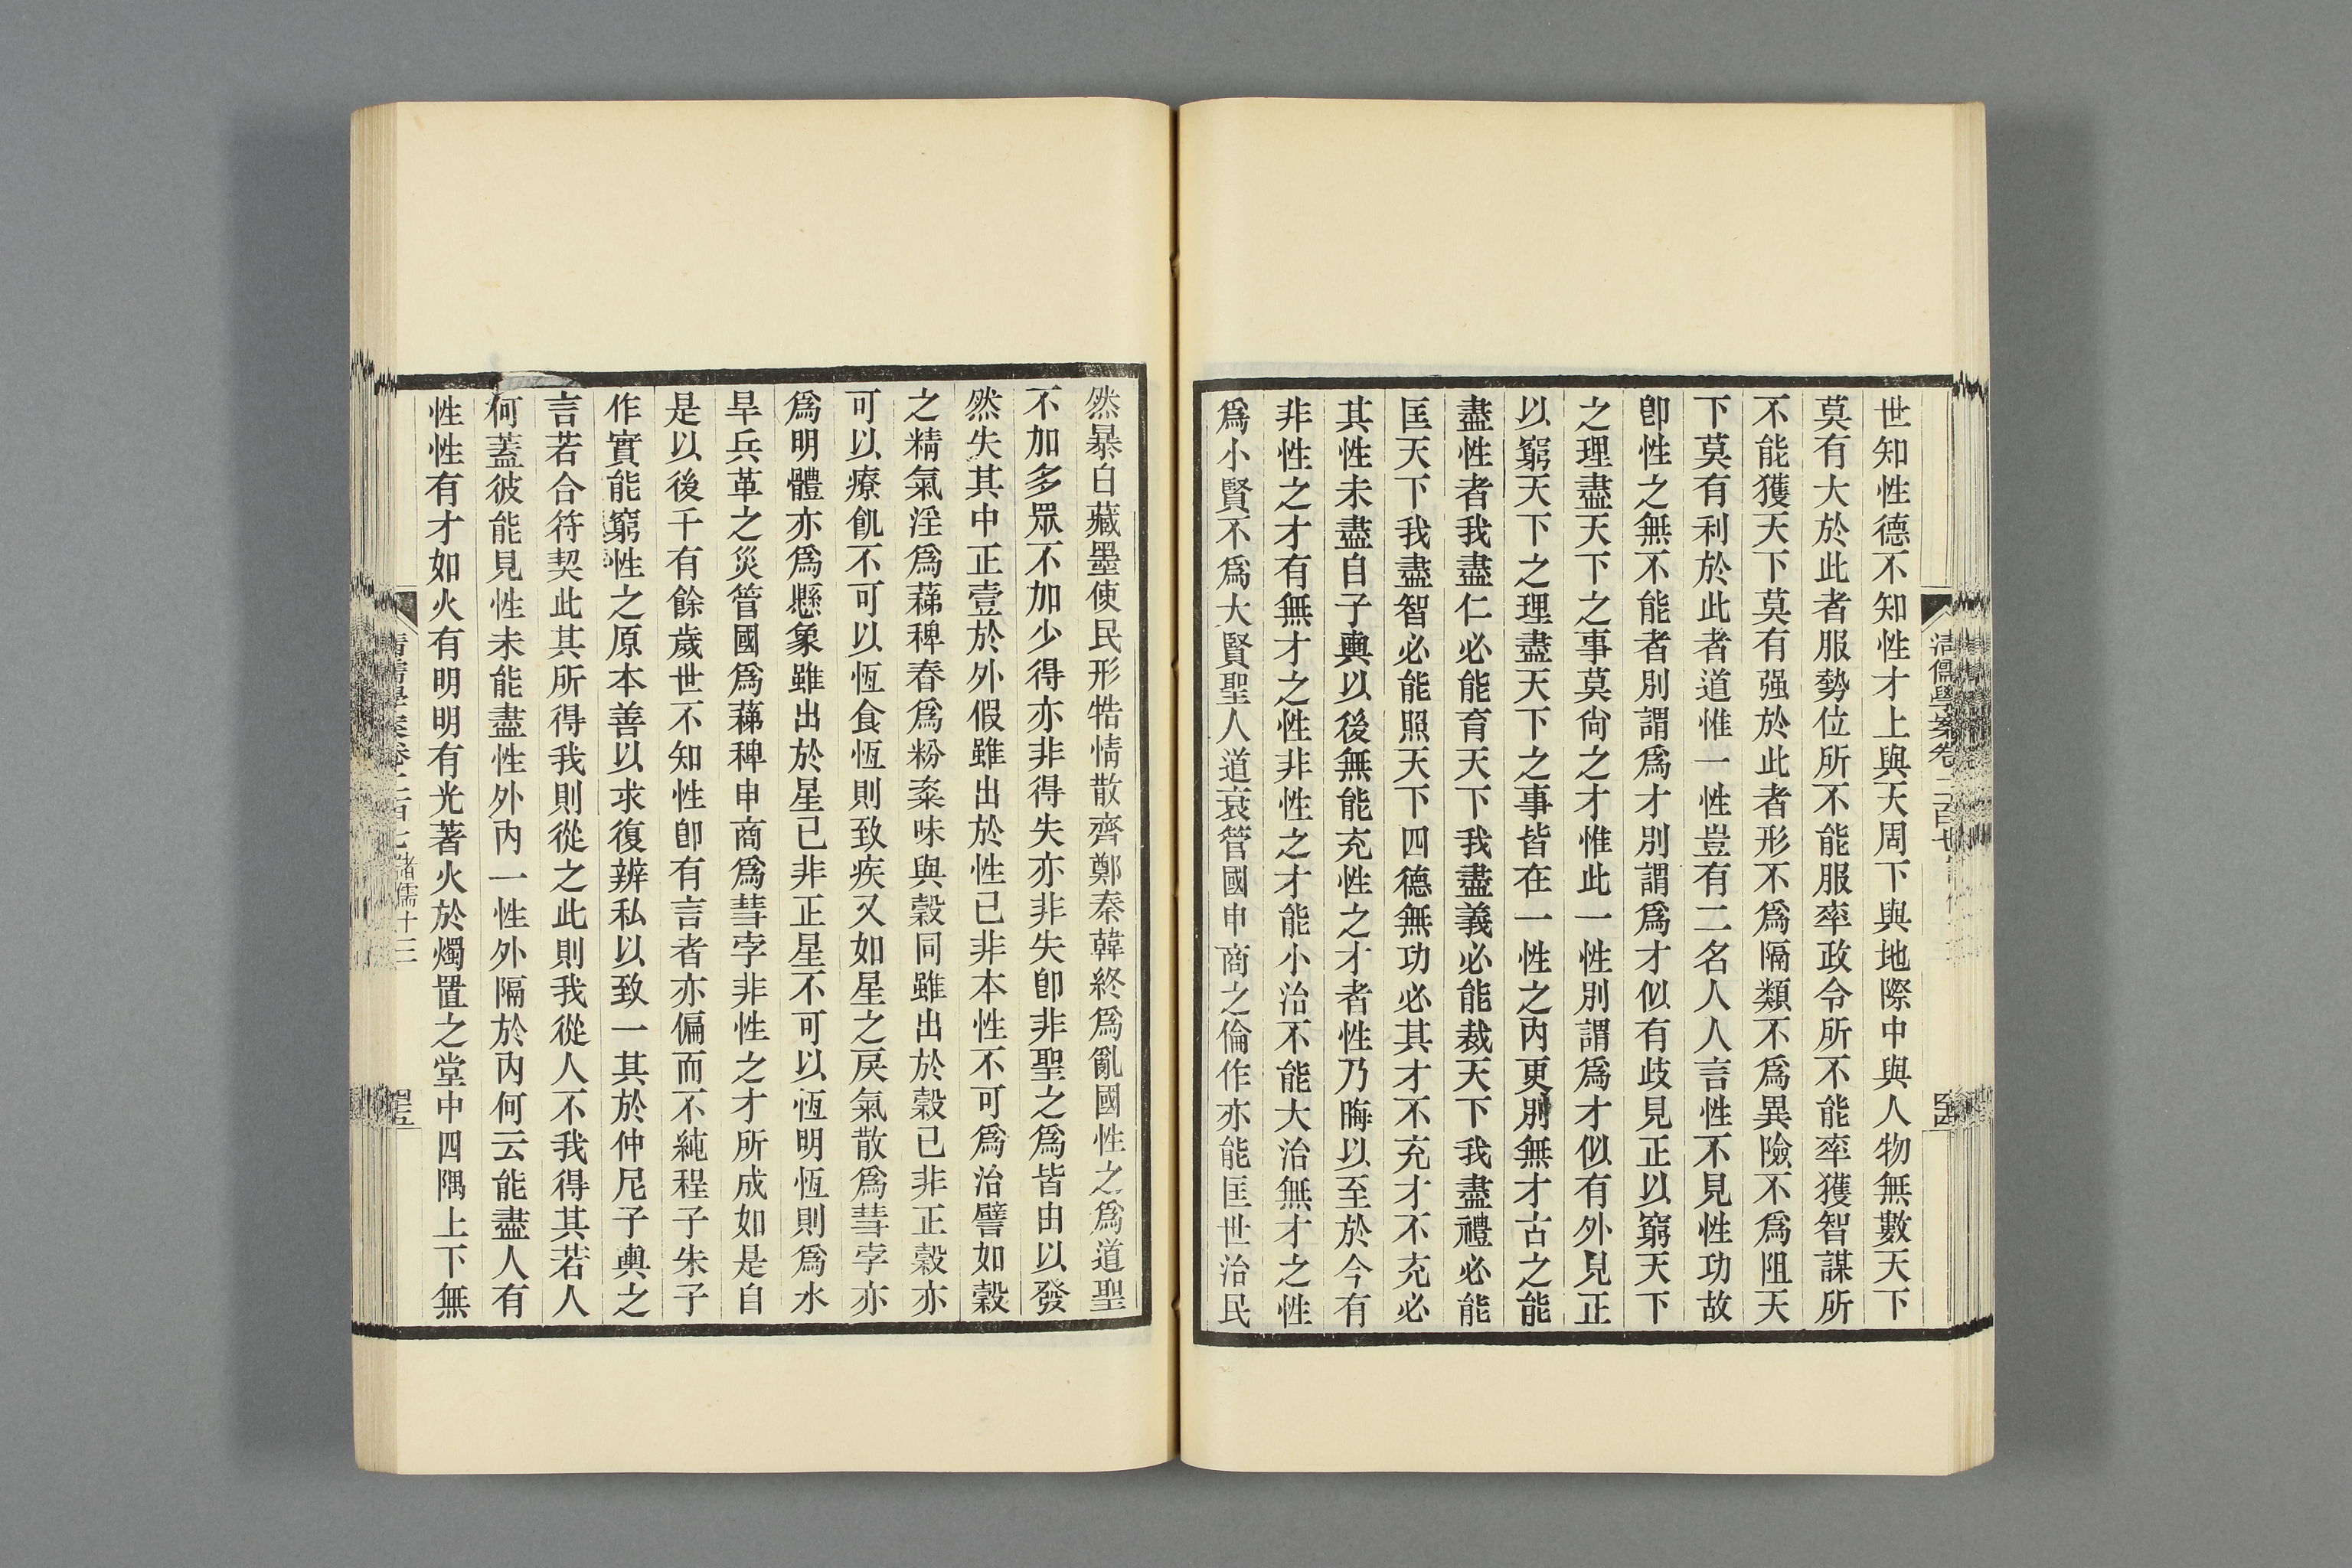 清儒學案卷二百七
世知性德不知性才上與天周下與地際中與人物無數天下
莫有大於此者服勢位所不能服率政令所不能率獲智謀所
不能獲天下莫有强於此者形不爲隔類不爲異險不爲阻天
下莫有利於此者道惟一性豈有二名人人言性不見性功故
卽性之無不能者別謂爲才別謂爲才似有歧見正以窮天下
之理盡天下之事莫尙之才惟此一性別謂爲才似有外見正
以窮天下之理盡天下之事皆在一性之內更別無才古之能
盡性者我盡仁必能育天下我盡義必能裁天下我盡禮必能
匡天下我盡智必能照天下四德無功必其才不充才不充必
其性未盡自子輿以後無能充性之才者性乃晦以至於今有
非性之才有無才之性非性之才能小治不能大治無才之性
爲小賢不爲大賢聖人道衰管國申商之倫作亦能匡世治民
然暴白藏墨使民形牿情散齊鄭秦韓終爲亂國性之爲道聖
不加多眾不加少得亦非得失亦非失卽非聖之爲皆由以發
然失其中正壹於外假雖出於性已非本性不可爲治譬如穀
之精氣淫爲蕛稗舂爲粉粢味與穀同雖出於穀已非正穀亦
可以療飢不可以恆食恆則致疾又如星之戾氣散爲彗孛亦
爲明體亦爲懸象雖出於星已非正星不可以恆明恆則爲水
旱兵革之災管國爲蕛稗申商爲彗孛非性之才所成如是自
是以後千有餘歲世不知性卽有言者亦偏而不純程子朱子
作實能窮性之原本善以求復辨私以致一其於仲尼子輿之
言若合符契此其所得我則從之此則我從人不我得其若人
何蓋彼能見性未能盡性外內一性外隔於內何云能盡人有
性性有才如火有明明有光著火於燭置之堂中四隅上下無
清儒學案卷二百七 諸儒十三